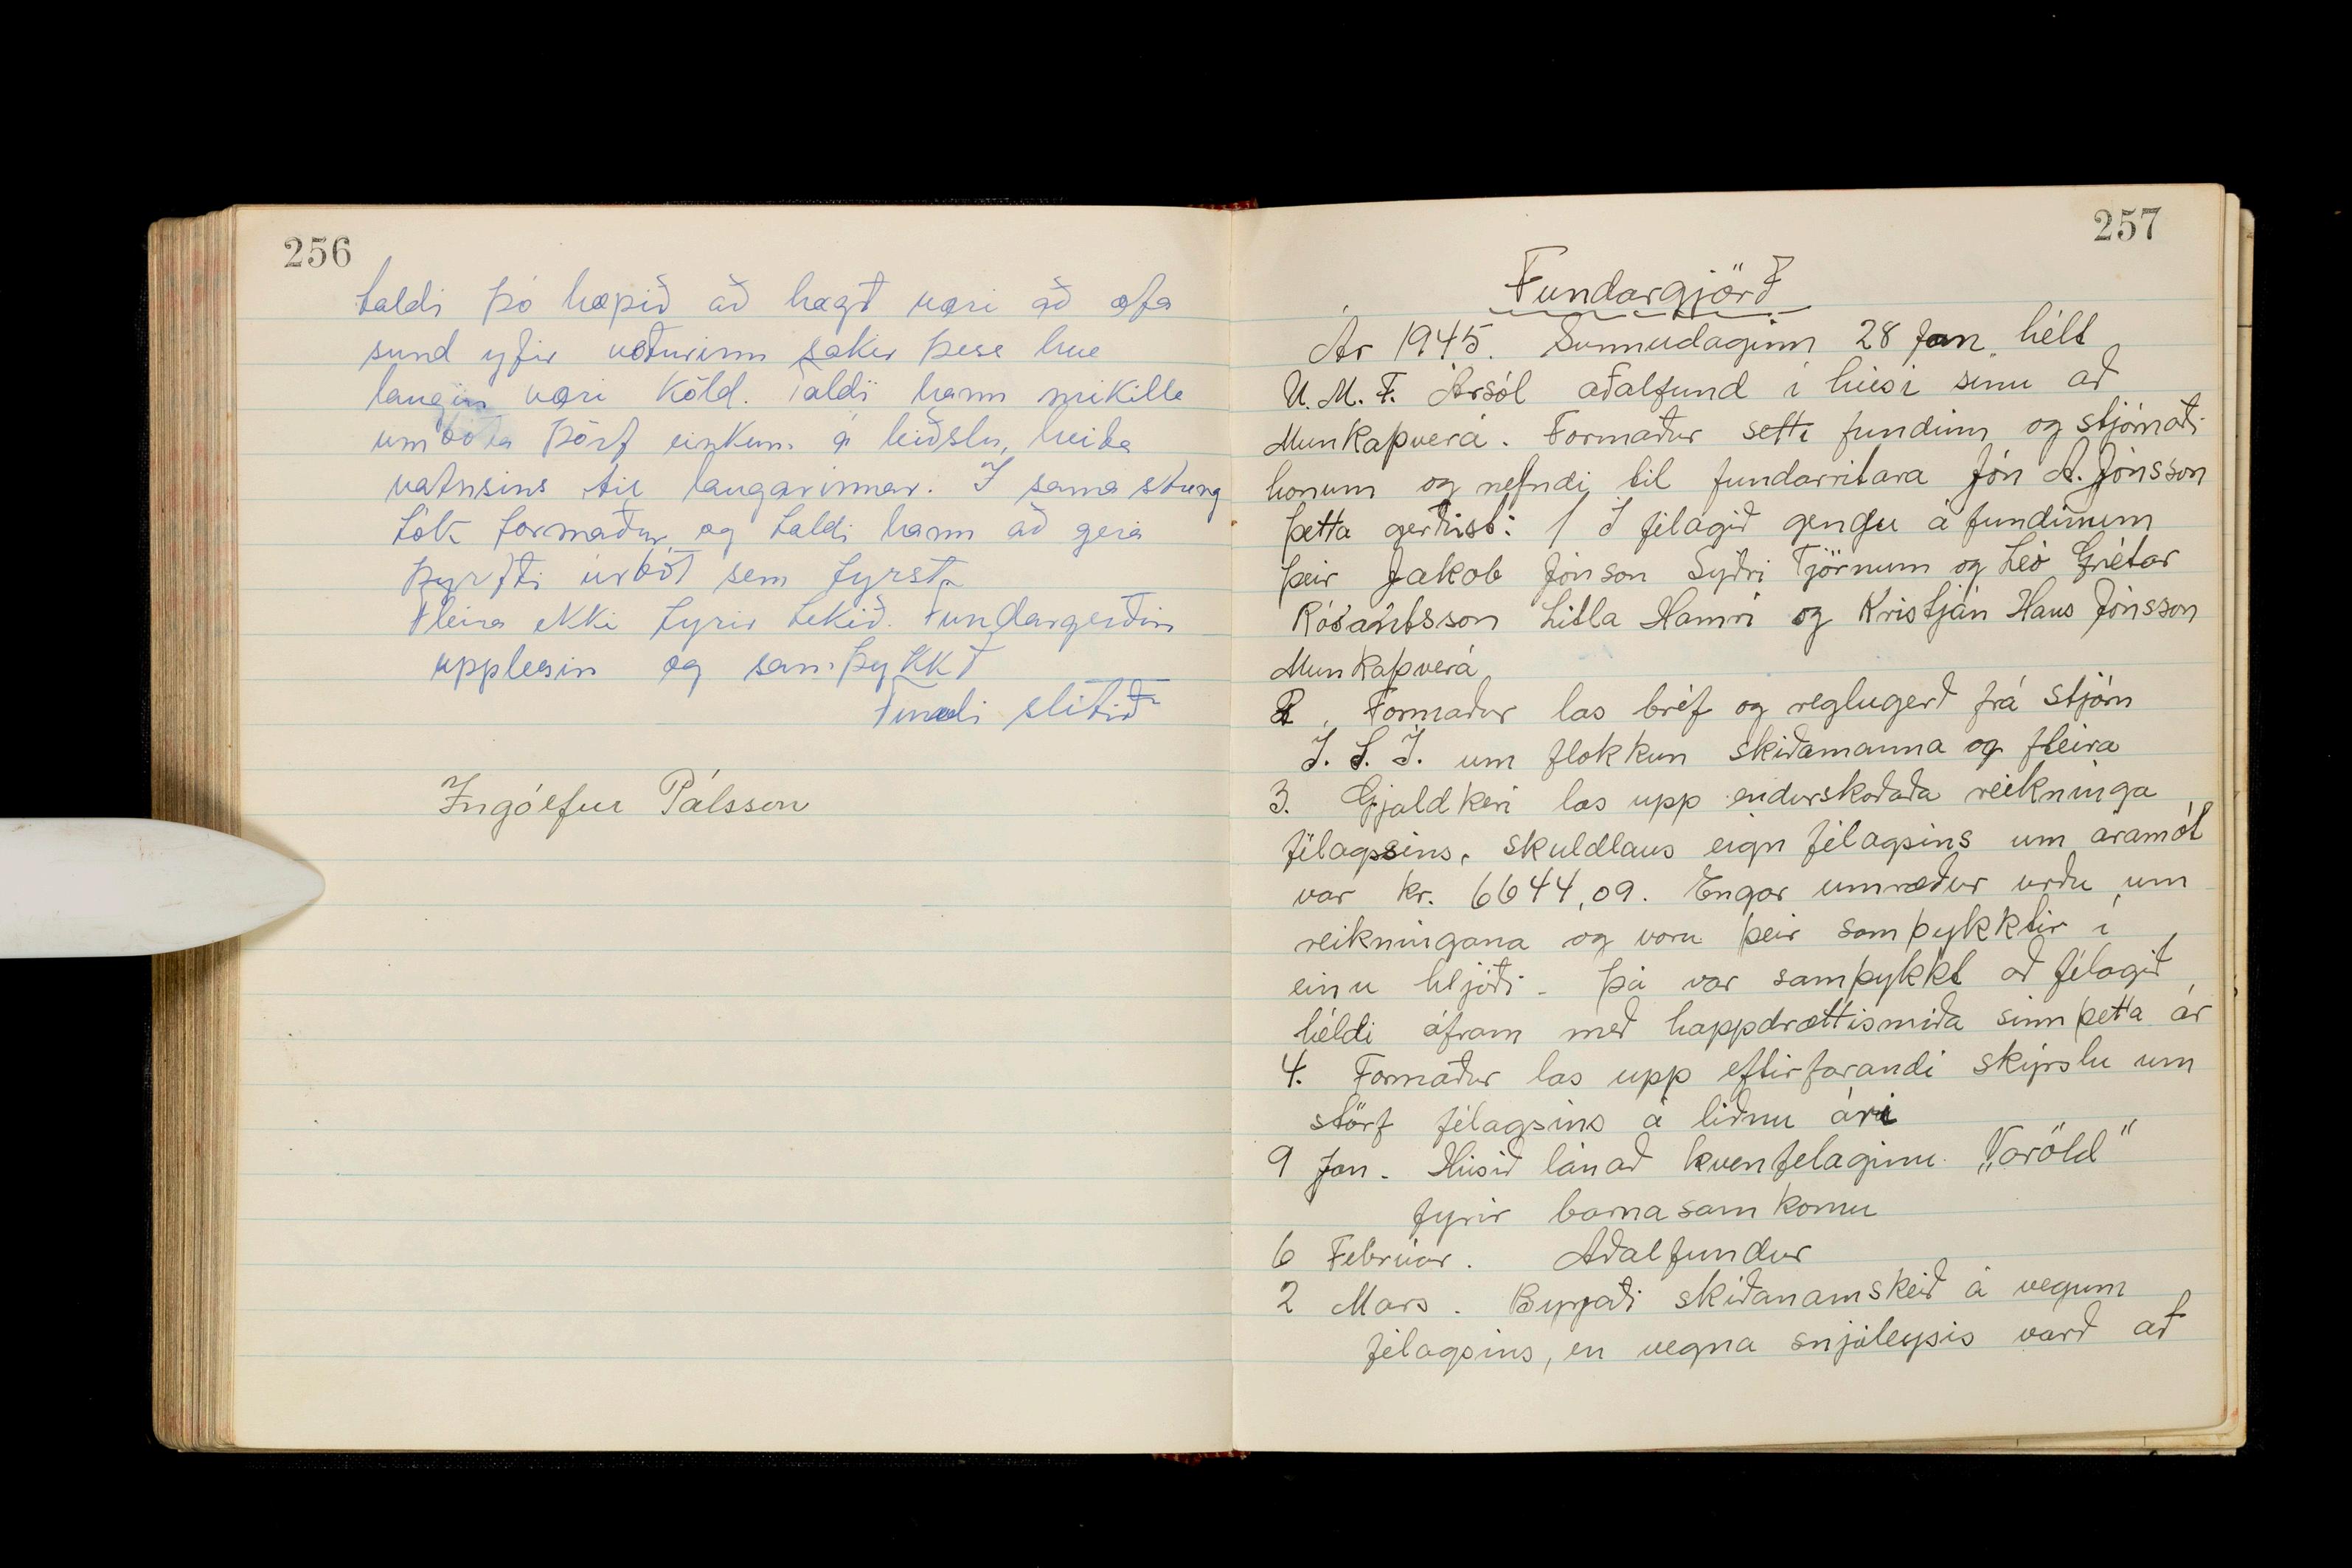 256
taldi þó hæpið að hægt væri að æfa
sund yfir veturinn sakir þess hve
laugin væri köld. Taldi hann mikilla
umbóta þörf einkum á leiðslu heita
vatnsins til laugarinnar. Í sama streng
tók formaður og taldi hann að gera
þyrfti úrbót sem fyrst
Fleira ekki fyrir tekið. Fundargerðin
upplesin og samþykkt
Fundi slitið
Ingólfur Pálsson
257
Fundargjörð
Ár 1945. Sunnudaginn 28 Jan. hélt
U. M. F. Ársól aðalfund í húsi sínu að
Munkaþverá. Formaður setti fundinn og stjórnaði
honum og nefndi til fundarritara Jón A. Jónsson
Þetta gerðist: 1 Í félagið gengu á fundinum
þeir Jakob Jónson Syðri Tjörnum og Leó Grétar
Rósantsson Litla Hamri og Kristján Hans Jónsson
Munkaþverá
2. Formaður las bréf og reglugerð frá stjórn
Í. S. Í. um flokkun skiðamanna og fleira
3. Gjaldkeri las upp endurskoðaða reikninga
félagssins, skuldlaus eign félagsins um áramót
var kr. 6644,09. Engar umræður urðu um
reikningana og voru þeir samþykktir í
einu hljóði. Þá var samþykkt að félagið
héldi áfram með happdrættismiða sinn þetta ár
4. Formaður las upp eftirfarandi skýrslu um
störf félagsins á liðnu ári
9 Jan. Húsið lánað kvenfelaginu „Voröld"
fyrir barnasamkomu
6 Febrúar. Aðalfundur
2 Mars. Byrjaði skíðanamskeið á vegum
félagsins, en vegna snjóleysis varð að